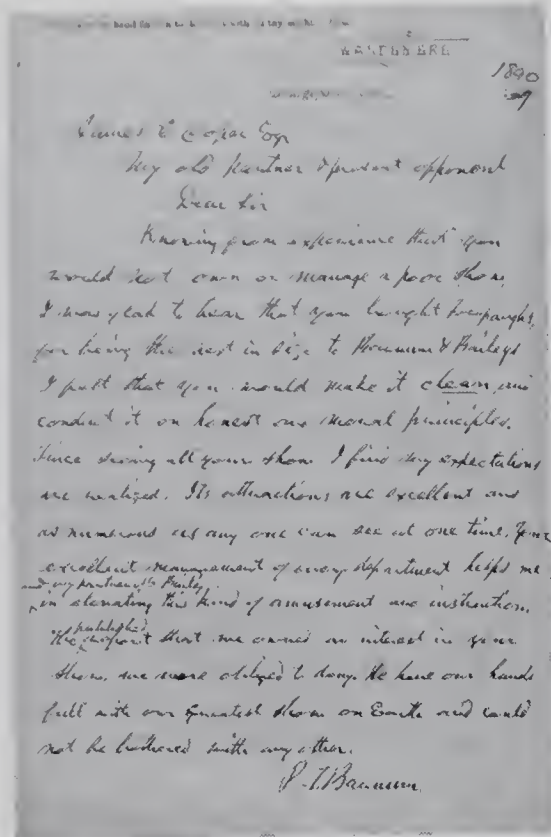 1890
James E Cooper Esqr
My old partner & present opponent
Dear Sir
Knowing from experience that you
would not own or manage a poor show,
I was glad to hear that you bought Forepaughs,
for being the next in size to Barnum & Baileys
I felt that you would make it clean, and
conduct it on honest and moral principles.
Since seeing all your show I find my expectations
are realized. Its attractions are excellent and
as numerous as any one can see at one time. Your
excellent management of every department helps me
and my partner Mr Bailey
in elevating this kind of amusement and instruction.
published
The report that we owned an interest in your
show, we were obliged to deny. We have our hands
full with our Greatest Show on Earth and could
not be bothered with any other.
P. T. Barnum